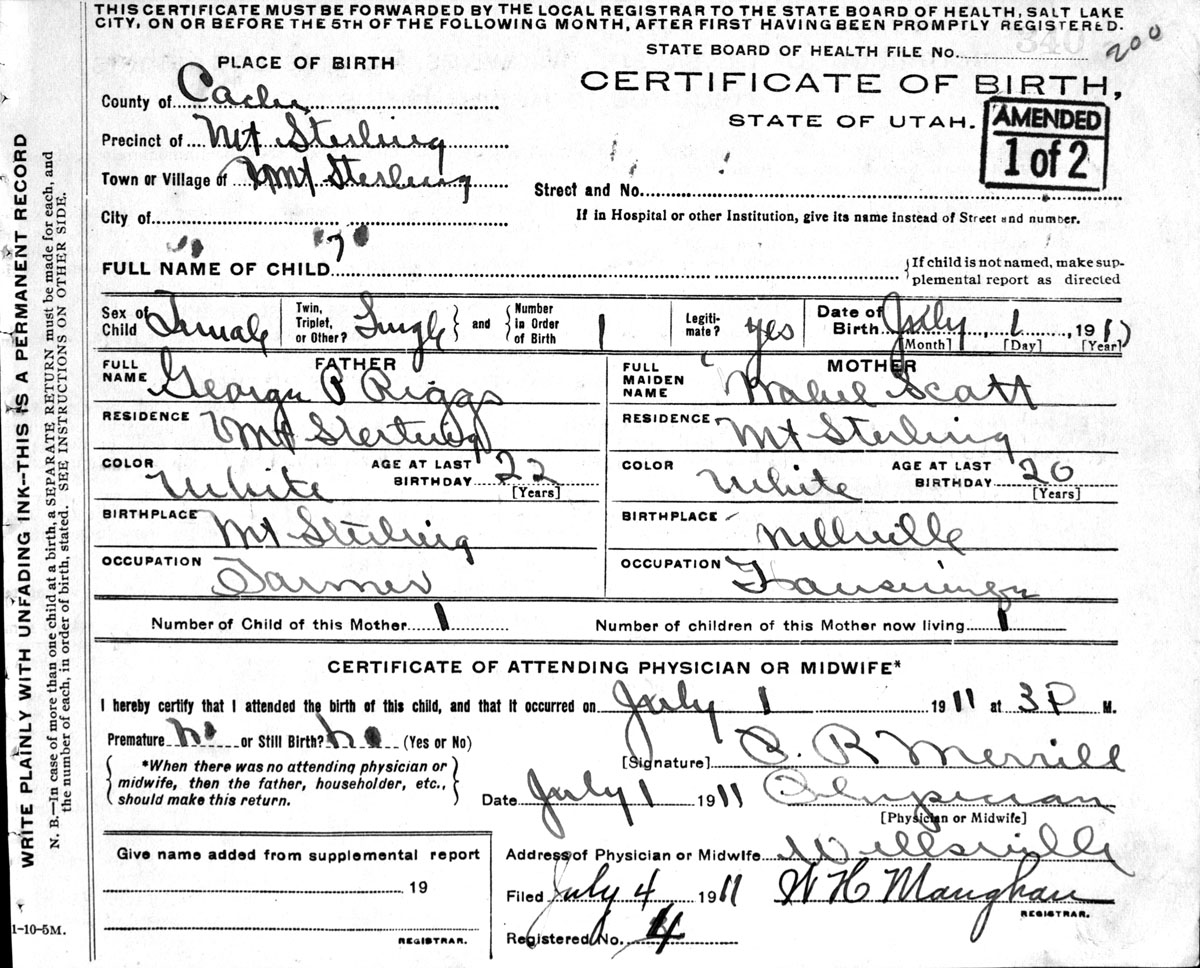 THIS CERTIFICATE MUST BE FORWARDED BY THE LOCAL REGISTRAR TO THE STATE BOARD OF HEALTH, SALT LAKE
CITY, ON OR BEFORE THE 5TH OF THE FOLLOWING MONTH, AFTER FIRST HAVING BEEN PROMPTLY REGISTERED.
STATE BOARD OF HEALTH FILE No. 340 200
PLACE OF BIRTH
CERTIFICATE OF BIRTH,
STATE OF UTAH.
AMENDED
1 of 2
County of Cache
Precinct of Mt Sterling
Town or Village of Mt Sterling
Street and No.
City of
If in Hospital or other Institution, give its name instead of Street and number.
FULL NAME OF CHILD
If child is not named, make sup-
plemental report as directed
Sex of Child Female
Twin, Triplet, or Other? Single
and Number in Order of Birth 1
Legiti-mate? yes
Date of Birth July, 1, 1911
[Month] [Day] [Year]
FATHER
FULL NAME George P Riggs
RESIDENCE Mt Sterling
COLOR White AGE AT LAST BIRTHDAY 22 [Years]
BIRTHPLACE Mt Sterling
OCCUPATION Farmer
MOTHER
FULL MAIDEN NAME Scott
RESIDENCE Mt Sterling
COLOR White AGE AT LAST BIRTHDAY 20 [Years]
BIRTHPLACE Millville
OCCUPATION
Number of Child of this Mother 1
Number of children of this Mother now living 1
CERTIFICATE OF ATTENDING PHYSICIAN OR MIDWIFE*
I hereby certify that I attended the birth of this child, and that it occurred on July 1 1911 at 3 P M.
Premature no or Still Birth? no (Yes or No)
*When there was no attending physician or
midwife, then the father, householder, etc.,
should make this return.
[Signature] C. R Merrill
Date July 1 1911 Physician
[Physician or Midwife]
Give name added from supplemental report
19
REGISTRAR.
Address of Physician or Midwife Wellsville
Filed July 4 1911 W H Maughan
REGISTRAR.
Registered No. 4
WRITE PLAINLY WITH UNFADING INK--THIS IS A PERMANENT RECORD
N. B.—In case of more than one child at a birth, a SEPARATE RETURN must be made for each, and
the number of each, in order of birth, stated. SEE INSTRUCTIONS ON OTHER SIDE.
1-10-5M.